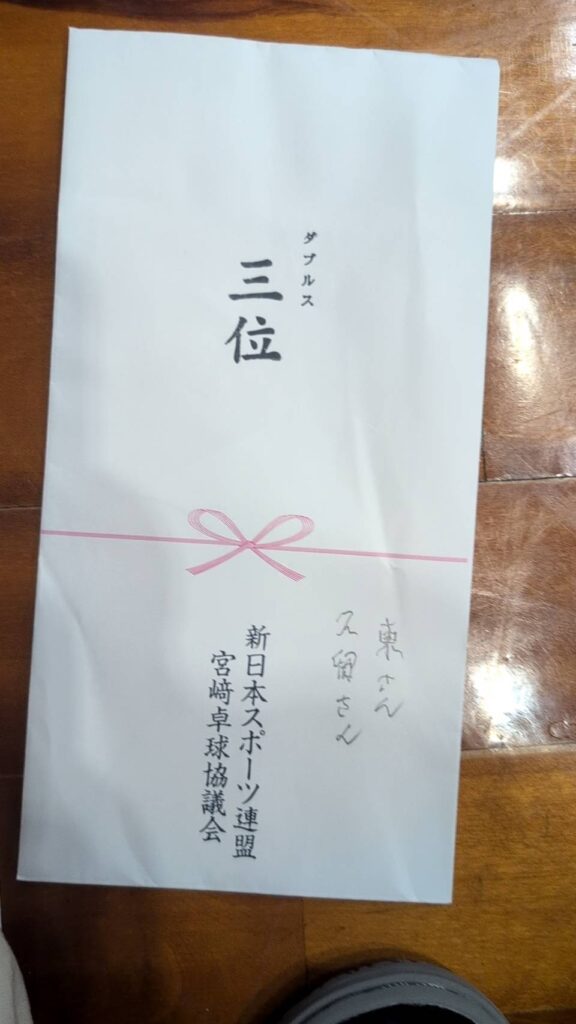 ダブルス
三位
東さん
久留さん
新日本スポーツ連盟
宮﨑卓球協議会